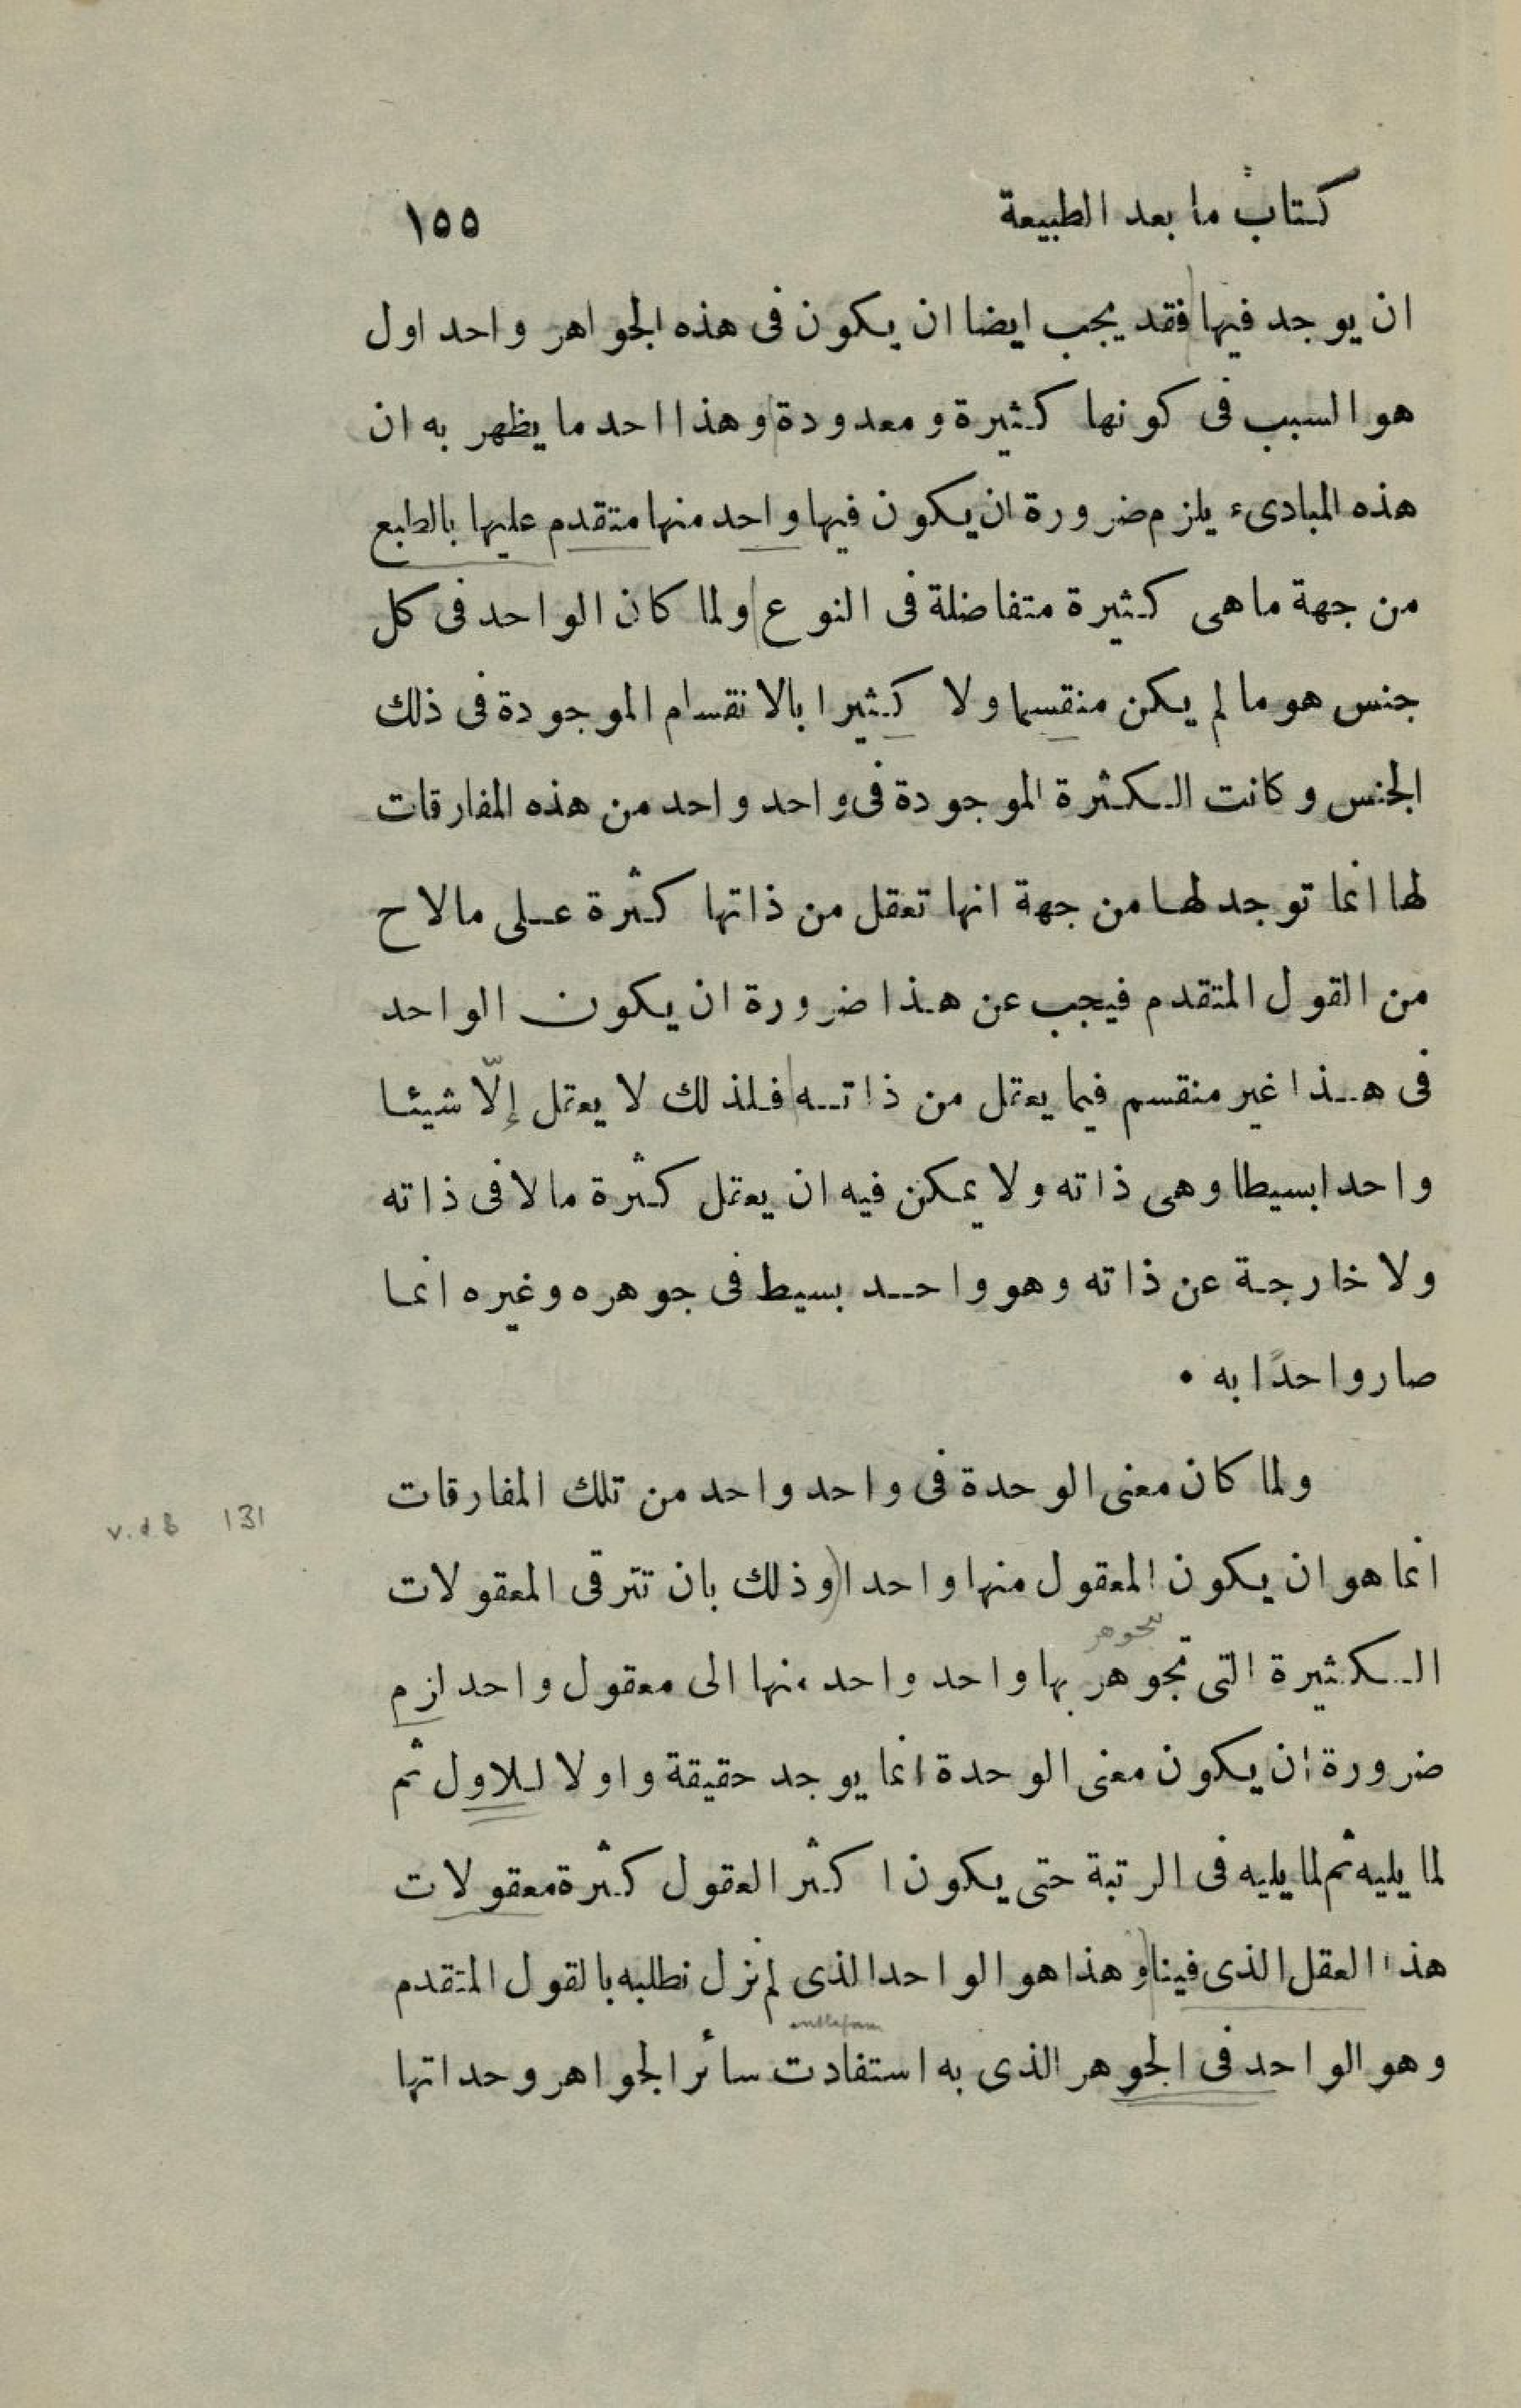 كتاب ما بعد الطبيعة ١٥٥
ان يوجد فيها فقد يجب ايضا ان يكون فى هذه الجواهر واحد اول
هو السبب فى كونها كثيرة ومعدودة وهذا احد ما يظهر به ان
هذه المبادىء يلزم ضرورة ان يكون فيها واحد منها متقدم عليها بالطبع
من جهة ما هى كثيرة متفاضلة فى النوع ولما كان الواحد فى كل
جنس هو ما لم يكن منقسما ولا كثيرا بالانقسام الموجودة فى ذلك
الجنس وكانت الكثرة الموجودة فى واحد واحد من هذه المفارقات
لها انما توجد لها من جهة انها تعقل من ذاتها كثرة على ما لاح
من القول المتقدم فيجب عن هذا ضرورة ان يكون الواحد
فى هذا غير منقسم فيما يعقل من ذاته فلذلك لا يعقل إلّا شيئا
واحدا بسيطا وهى ذاته ولا يمكن فيه ان يعقل كثرة ما لا فى ذاته
ولا خارجة عن ذاته وهو واحد بسيط فى جوهره وغيره انما
صار واحدًا به ٠
ولما كان معنى الوحدة فى واحد واحد من تلك المفارقات
v.d B 131
انما هو ان يكون المعقول منها واحدا (وذلك بان تترقى المعقولات
يتجوهر
الكثيرة التى تجوهر بها واحد واحد منها الى معقول واحد ازم
ضرورة ان يكون معنى الوحدة انما يوجد حقيقة واولا للاول ثم
لما يليه ثم لما يليه فى الرتبة حتى يكون اكثر العقول كثرة معقولات
هذا العقل الذى فينا وهذا هو الواحد الذى لم نزل نطلبه بالقول المتقدم
وهو الواحد فى الجوهر الذى به استفادت سائر الجواهر وحداتها